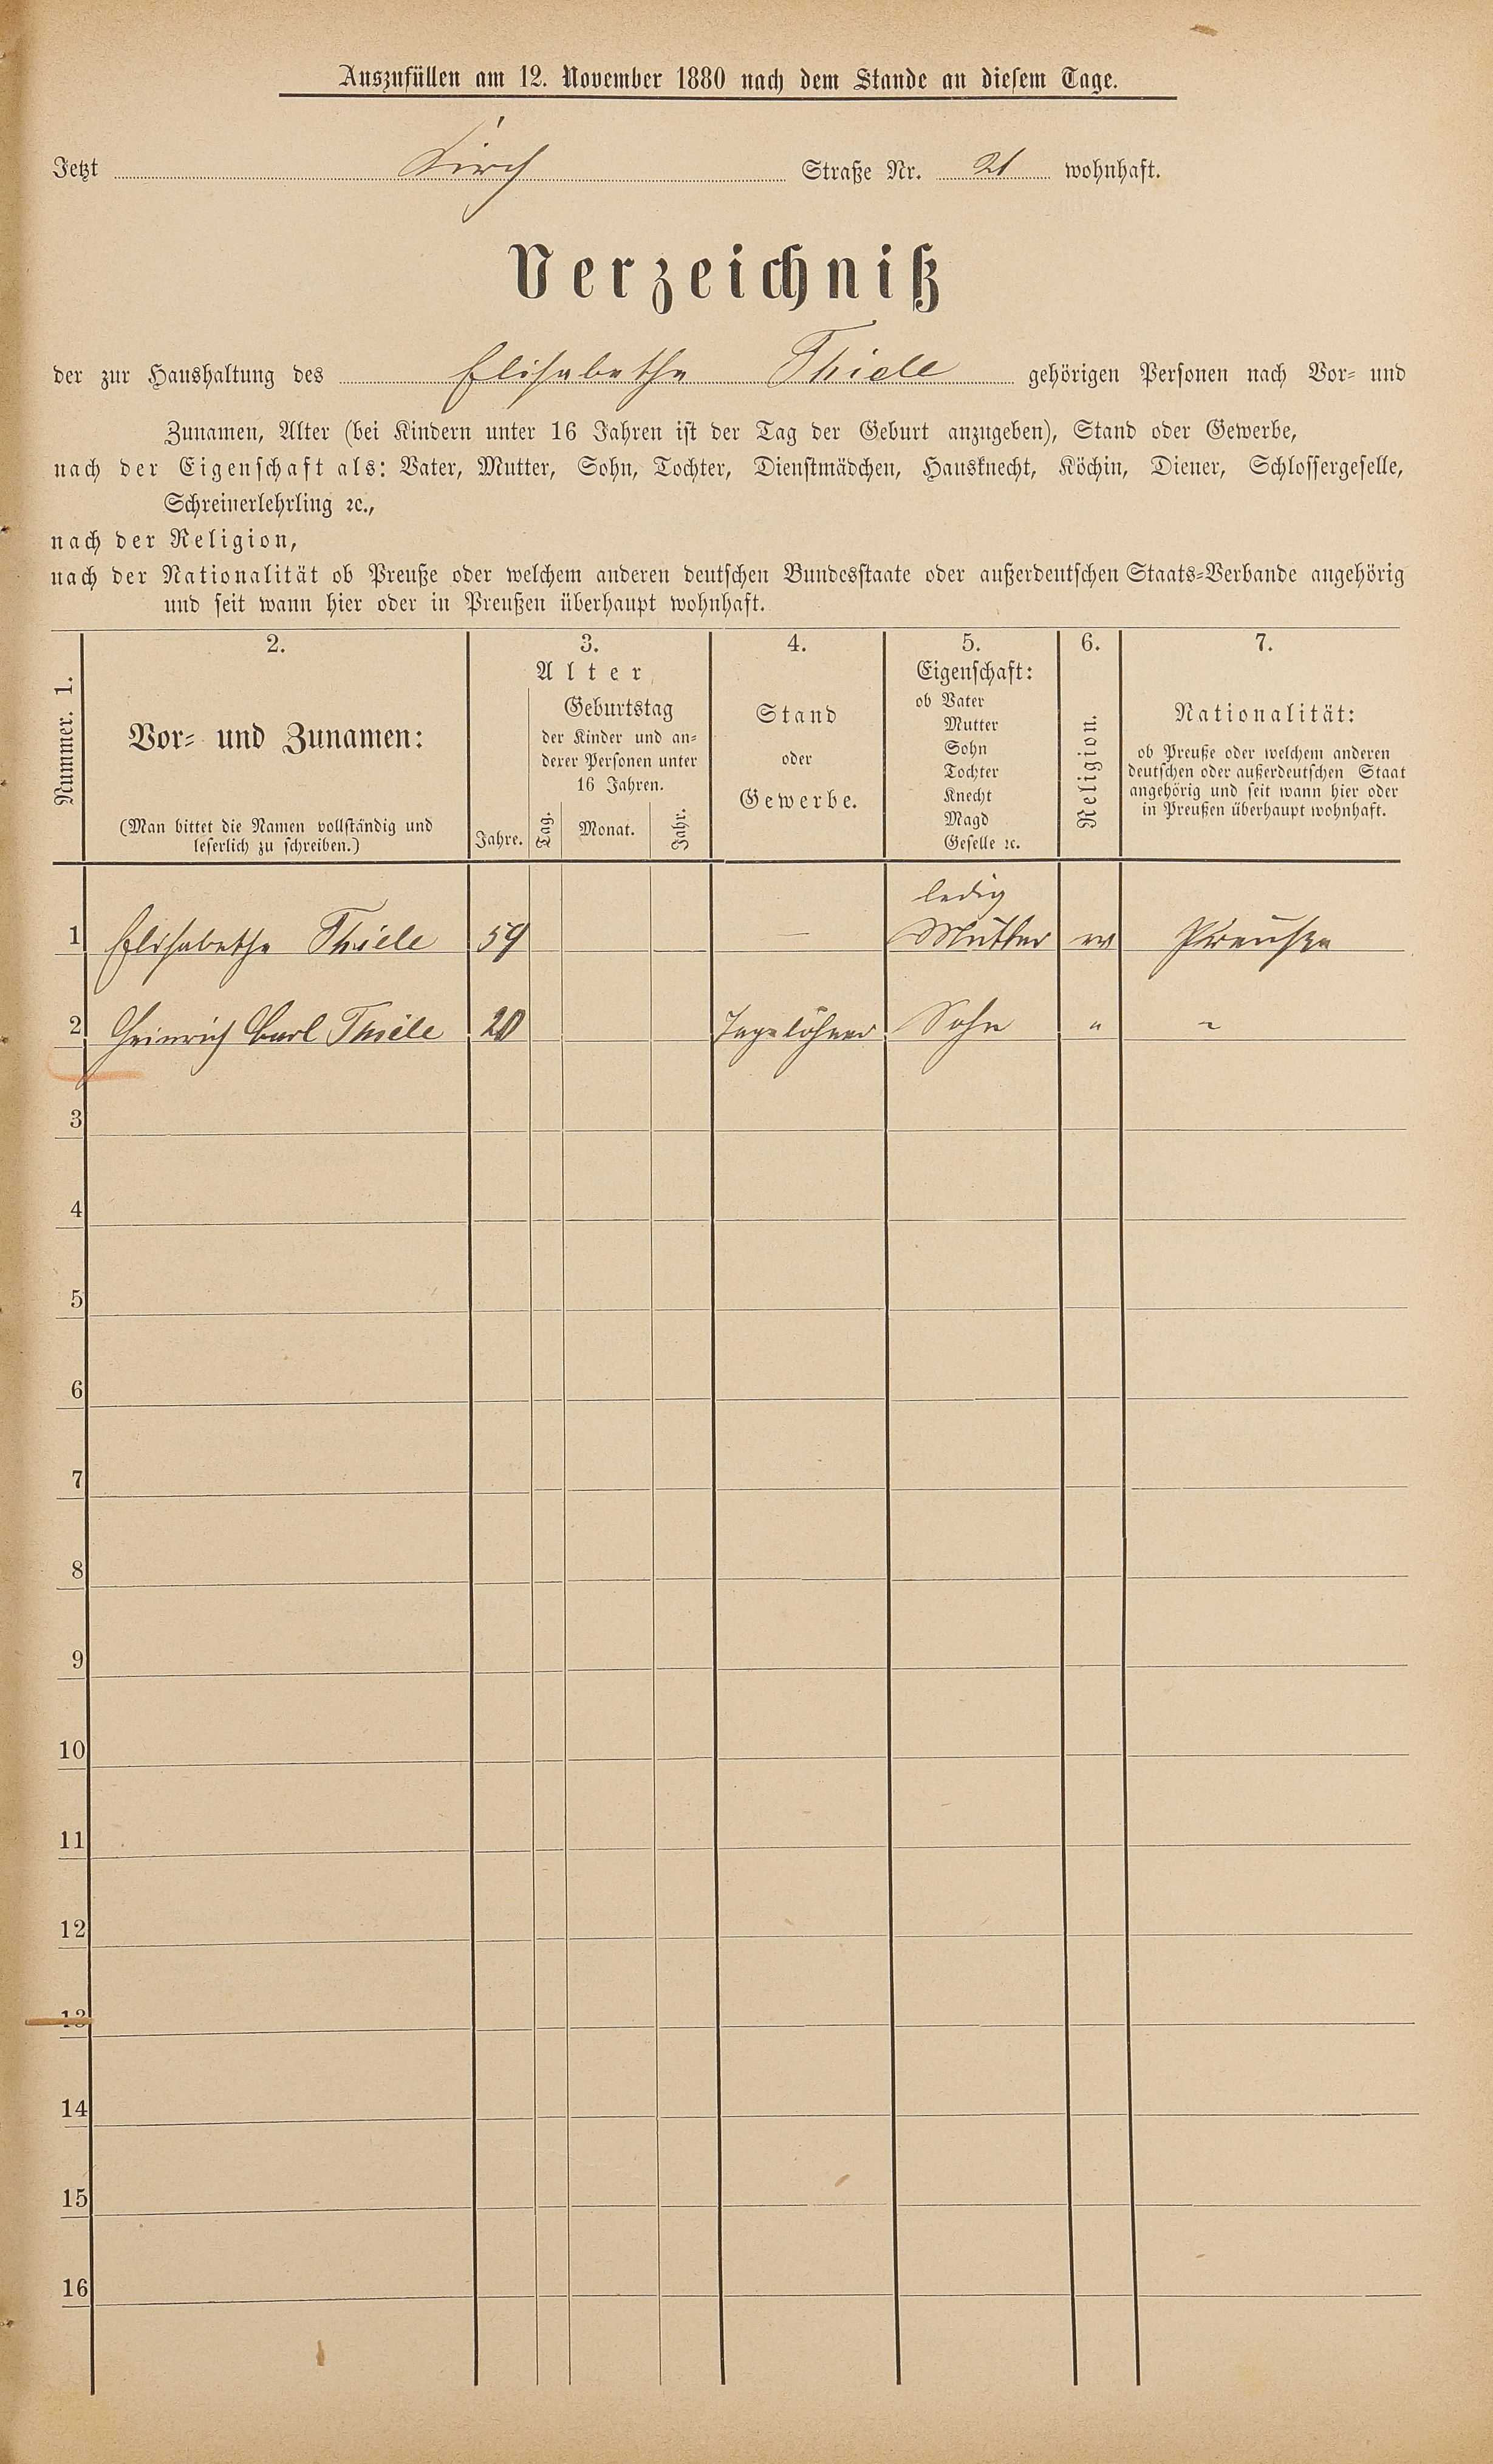 Auszufüllen am 12. November 1880 nach dem Stande an diesem Tage.
Jetzt Kirch Straße Nr. 21 wohnhaft.
Verzeichniß
der zur Haushaltung des Elisabethe Thiele gehörigen Personen nach Vor- und
Zunamen, Alter (bei Kindern unter 16 Jahren ist der Tag der Geburt anzugeben), Stand oder Gewerbe,
nach der Eigenschaft als: Vater, Mutter, Sohn, Tochter, Dienstmädchen, Hausknecht, Köchin, Diener, Schlossergeselle,
Schreinerlehrling ꝛc.,
nach der Religion,
nach der Nationalität ob Preuße oder welchem anderen deutschen Bundesstaate oder außerdeutschen Staats-Verbande angehörig
und seit wann hier oder in Preußen überhaupt wohnhaft.
Nummer. 1.
2.
Vor- und Zunamen:
(Man bittet die Namen vollständig und
leserlich zu schreiben.)
3.
Alter
Jahre.
Geburtstag
der Kinder und an-
derer Personen unter
16 Jahren.
Tag. Monat. Jahr.
4.
Stand
oder
Gewerbe.
5.
Eigenschaft:
ob Vater
Mutter
Sohn
Tochter
Knecht
Magd
Geselle ꝛc.
6.
Religion.
7.
Nationalität:
ob Preuße oder welchem anderen
deutschen oder außerdeutschen Staat
angehörig und seit wann hier oder
in Preußen überhaupt wohnhaft.
ledig
1 Elisabethe Thiele 59 — Mutter ev Preußen
2 Heinrich Carl Thiele 20 Tagelöhner Sohn " "
3
4
5
6
7
8
9
10
11
12
13
14
15
16